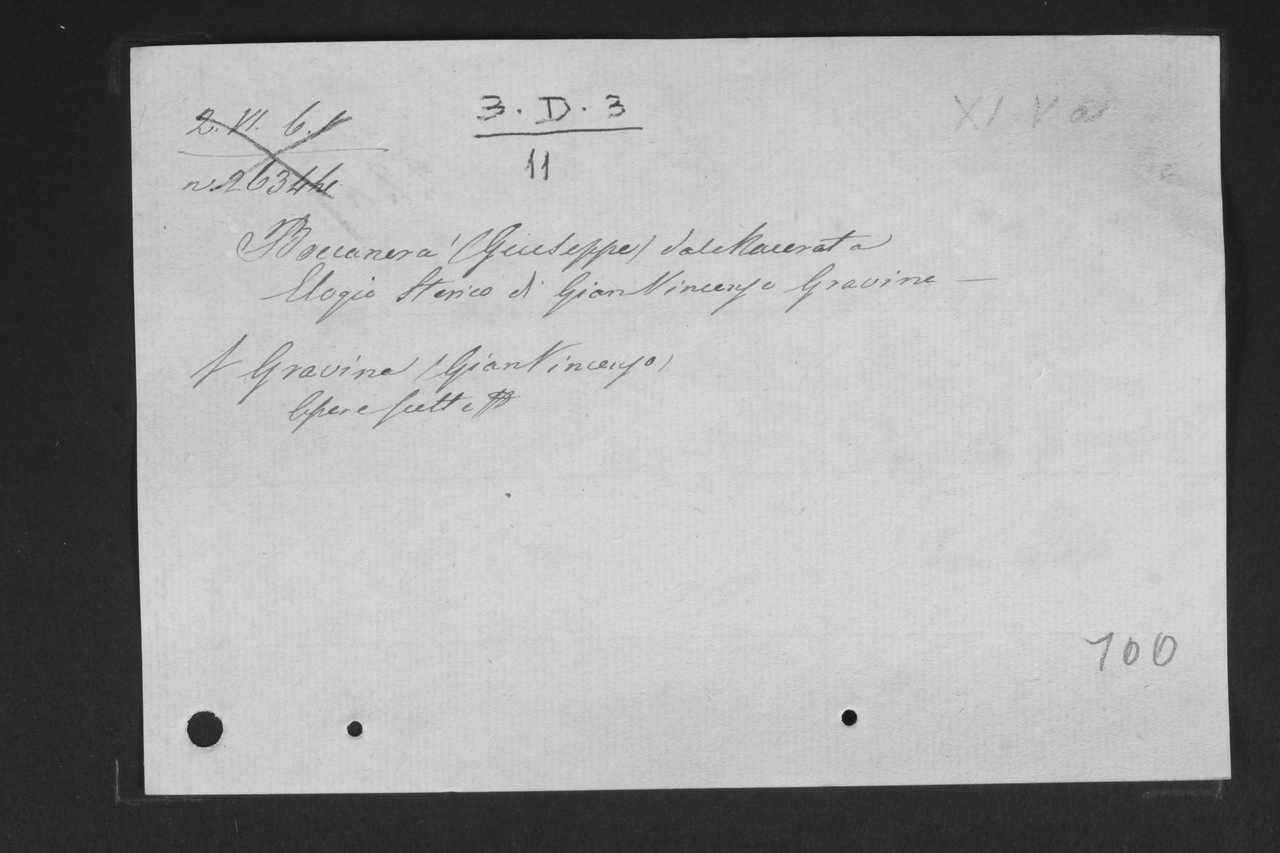 2. VI. 6. V
3. D. 3
XI V a
n. 26344
11
Boccanera (Giuseppe) da Macerata
Elogio Storico di Gian Vincenzo Gravina —
Gravina (Gian Vincenzo)
Opere scelte
100